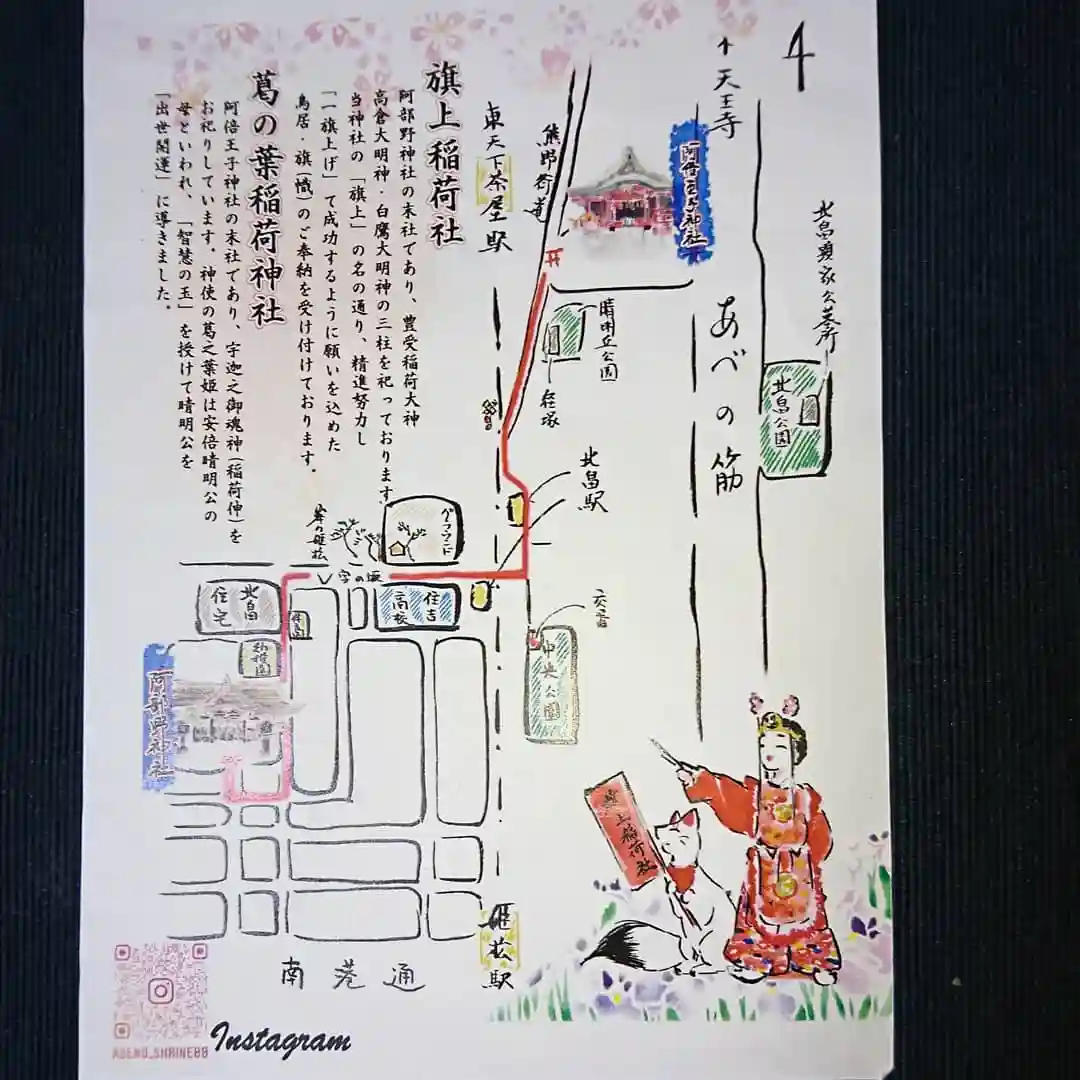 4
↑天王寺
北畠顕家公墓所
阿倍王子神社
熊野街道
東天下茶屋駅
あべの筋
北畠公園
晴明丘公園
経塚
北畠駅
交番
中央公園
旗上稲荷社
阿部野神社の末社であり、豊受稲荷大神
高倉大明神・白鷹大明神の三柱を祀っております
当神社の「旗上」の名の通り、精進努力し
「一旗上げ」て成功するように願いを込めた
鳥居・旗(幟)のご奉納を受け付けております。
葛の葉稲荷神社
阿倍王子神社の末社であり、宇迦之御魂神(稲荷伸)を
お祀りしています。神使の葛之葉姫は安倍晴明公の
母といわれ、「智慧の玉」を授けて晴明公を
「出世開運」に導きました。
グラウンド
V字の坂
住吉
高校
北畠
住宅
幼稚園
阿部野神社
旗上稲荷社
姫松駅
南港通
ABENO_SHRINE88
Instagram